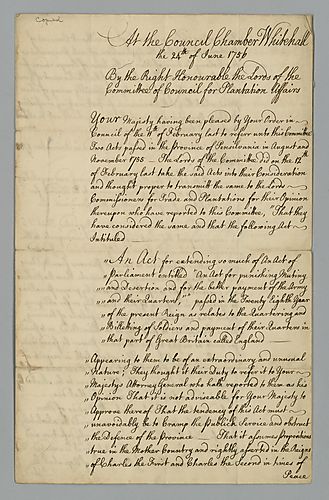 Copied
At the Council Chamber Whitehall
the 24th of June 1756
By the Right Honourable the Lords of the
Committee of Council for Plantation Affairs
Your Majesty having been pleased by Your Order in
Council of the of February last to refer unto this Committee
Two Acts passed in the Province of Pensilvania in August and
November 1755 — The Lords of the Committee did on the 12th
of February last take the said Acts into their Consideration
and thought proper to transmit the same to the Lords
Commissioners for Trade and Plantations for their Opinion
thereupon who have reported to this Committee, "That they
have considered the same and that the following Act
Intituled
"An Act for extending so much of An Act of
"Parliament entitled "An Act for punishing Mutiny
"and Desertion and for the better payment of the Army
"and their Quarters," passed in the Twenty Eighth Year
"of the present Reign as relates to the Quartering and
"Billetting of Soldiers and payment of their Quarters in
"that part of Great Britain called England
"Appearing to them to be of an extraordinary and unusual
"Nature; They thought it their Duty to refer it to Your
"Majestys Attorney General who hath reported to them as his
"Opinion That it is not adviseable for Your Majesty to
"Approve thereof That the tendency of this Act must
"unavoidably be to Cramp the Publick Service and obstruct
"the Defence of the Province That it assumes propositions
"true in the Mother Country and rightly asserted in the Reigns
"of Charles the First and Charles the Second in times of
Peace